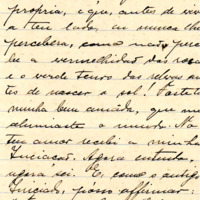 propria, e que, antes de viv
a teu lado, eu nunca the
percebera, como não perce
bi a vermelhidão das ros
e o verde tenro das relvas an
tes de nascer o sol! Foste tu
minha bem amada, que m
alumiaste o mundo. No
teu amor recebi a minha
Iniciação. Agora entendo,
agora sei. E, como o antigo
Iniciado, posso affirmar: